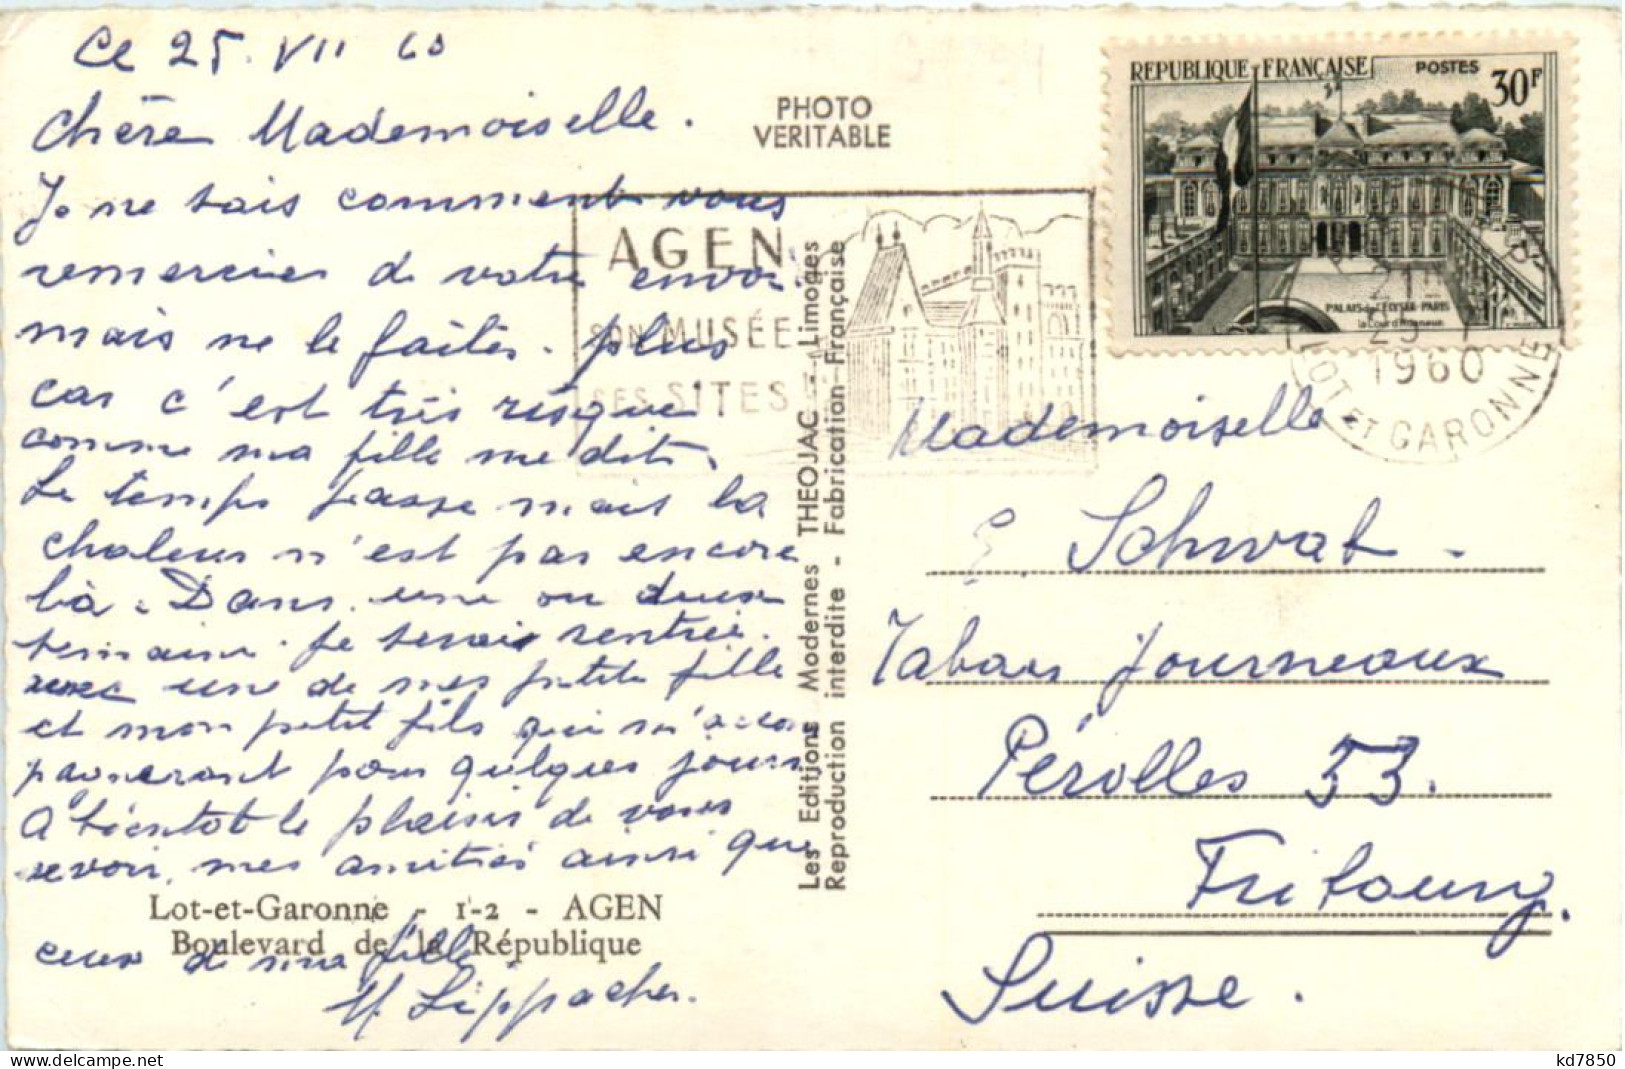 Ce 25. VII 60
Chère Mademoiselle.
Je ne sais comment vous
remercier de votre envoi
mais ne le faites. plus
car c'est très risque
comme ma fille me dit.
Le temps passe mais la
chaleur n'est pas encore
là. Dans une ou deux
semaine. Je serai rentrée.
avec une de mes petite fille
et mon petit fils qui m'accom
pagneront pour quelques jours
A bientot le plaisir de vous
revoir, mes amitiés ainsi que
ceux de ma fille
M. Lippacher.
Lot-et-Garonne - 1-2 - AGEN
Boulevard de la République
PHOTO
VERITABLE
AGEN
SON MUSÉE
SES SITES
Les Editions Modernes THEOJAC - Limoges
Reproduction interdite - Fabrication Française
REPUBLIQUE FRANÇAISE
POSTES
30F
PALAIS de L'ELYSEE-PARIS
la Cour d'Honneur
1960
LOT ET GARONNE
Mademoiselle
E. Schwab -
Tabacs Journeaux
Pérolles 53.
Fribourg.
Suisse.
kd7850